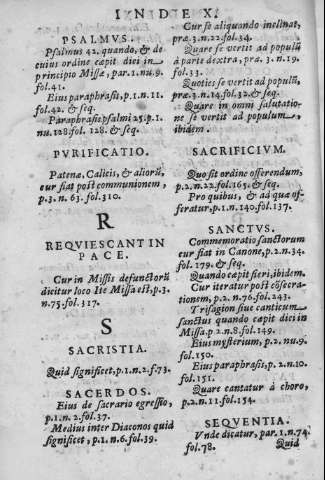 INDEX.
PSALMVS.
Psalmus 42. quando, & de
cuius ordine capit dici in
principio Missæ, par. 1. nu. 9.
fol. 41.
Eius paraphrasis, p. 1. n. 11.
fol. 42. & seq.
Paraphrasis psalmi 25. p. 1.
nu. 128. fol. 128. & seq.
PVRIFICATIO.
Patenæ, Calicis, & aliorũ,
cur fiat post communionem,
p. 3. n. 63. fol. 310.
R
REQVIESCANT IN
PACE.
Cur in Missis defunctorũ
dicitur loco Ite Missa est, p. 3.
n. 75. fol. 317.
S
SACRISTIA.
Quid significet, p. 1. n. 2. f. 73.
SACERDOS.
Eius de sacrario egressio,
p. 1. n. 2. fol. 37.
Medius inter Diaconos quid
significet, p. 1. n. 6. fol. 39.
Cur se aliquando inclinat,
præ. 3. n. 22. fol. 34.
Quare se vertit ad populũ
à parte dextra, præ. 3. n. 19.
fol. 33.
Quoties se vertit ad populũ,
præ. 3. n. 14. fol. 32. & seq.
Quare in omni salutatio-
ne se vertit ad populum,
ibidem.
SACRIFICIVM.
Quo sit ordine offerendum,
p. 2. n. 22. fol. 165. & seq.
Pro quibus, & ad quæ of-
feratur, p. 1. n. 140. fol. 137.
SANCTVS.
Commemoratio sanctorum
cur fiat in Canone, p. 2. n. 34.
fol. 179. & seq.
Quando capit fieri, ibidem.
Cur iteratur post cõsecra-
tionem, p. 2. n. 76. fol. 243.
Trisagion siue canticum
sanctus quando capit dici in
Missa. p. 2. n. 8. fol. 149.
Eius mysterium, p. 2. nu. 9.
fol. 150.
Eius paraphrasis, p. 2. n. 10.
fol. 151.
Quare cantatur à choro,
p. 2. n. 11. fol. 154.
SEQVENTIA.
Vnde dicatur, par. 1. n. 74.
fol. 78.
Quid